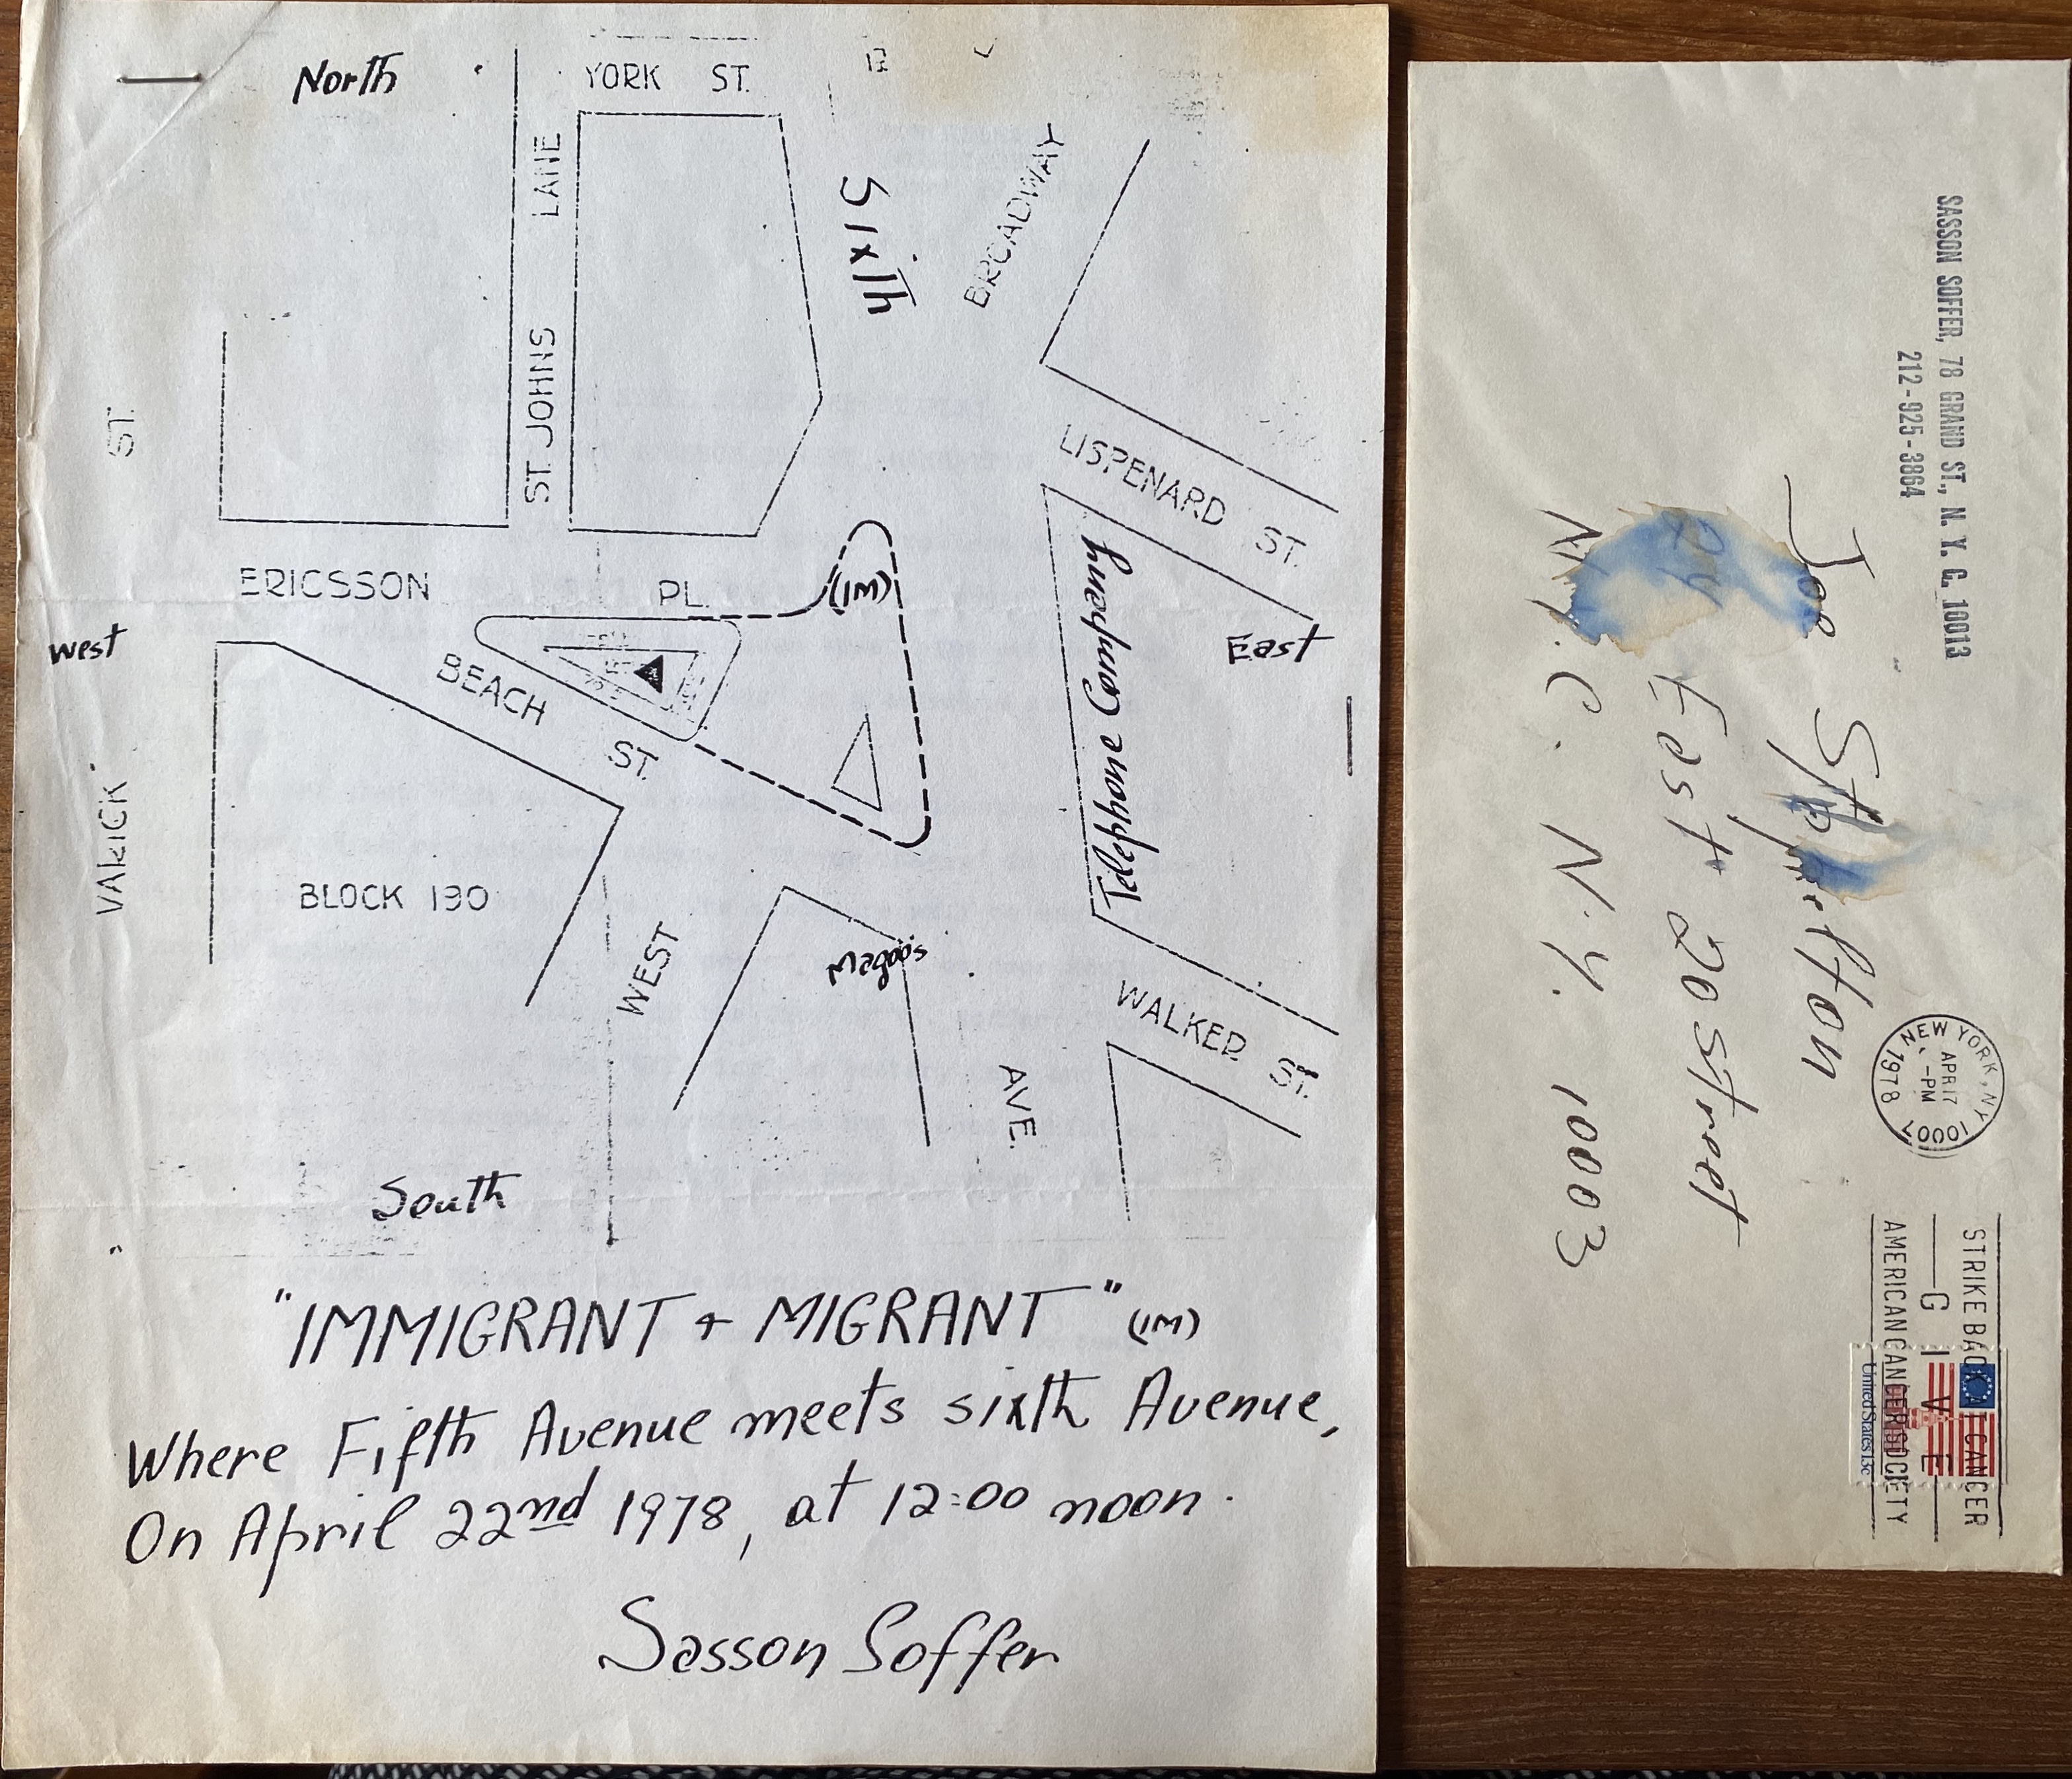 North
YORK ST.
ST. JOHNS LANE
SIXTH
BROADWAY
LISPENARD ST.
ST.
ERICSSON PL.
(IM)
Telephone Company
East
West
BEACH ST.
VARICK
BLOCK 190
WEST
Magoo's
WALKER ST.
AVE.
South
"IMMIGRANT + MIGRANT" (IM)
Where Fifth Avenue meets sixth Avenue,
On April 22nd 1978, at 12:00 noon.
Sasson Soffer
SASSON SOFFER, 78 GRAND ST., N. Y. C. 10013
212-925-3864
Joe
East 20 street
N.Y.C. N.Y. 10003
NEW YORK, NY 10001
APR 17
-PM
1978
STRIKE BACK AT CANCER
GIVE
AMERICAN CANCER SOCIETY
United States 13c